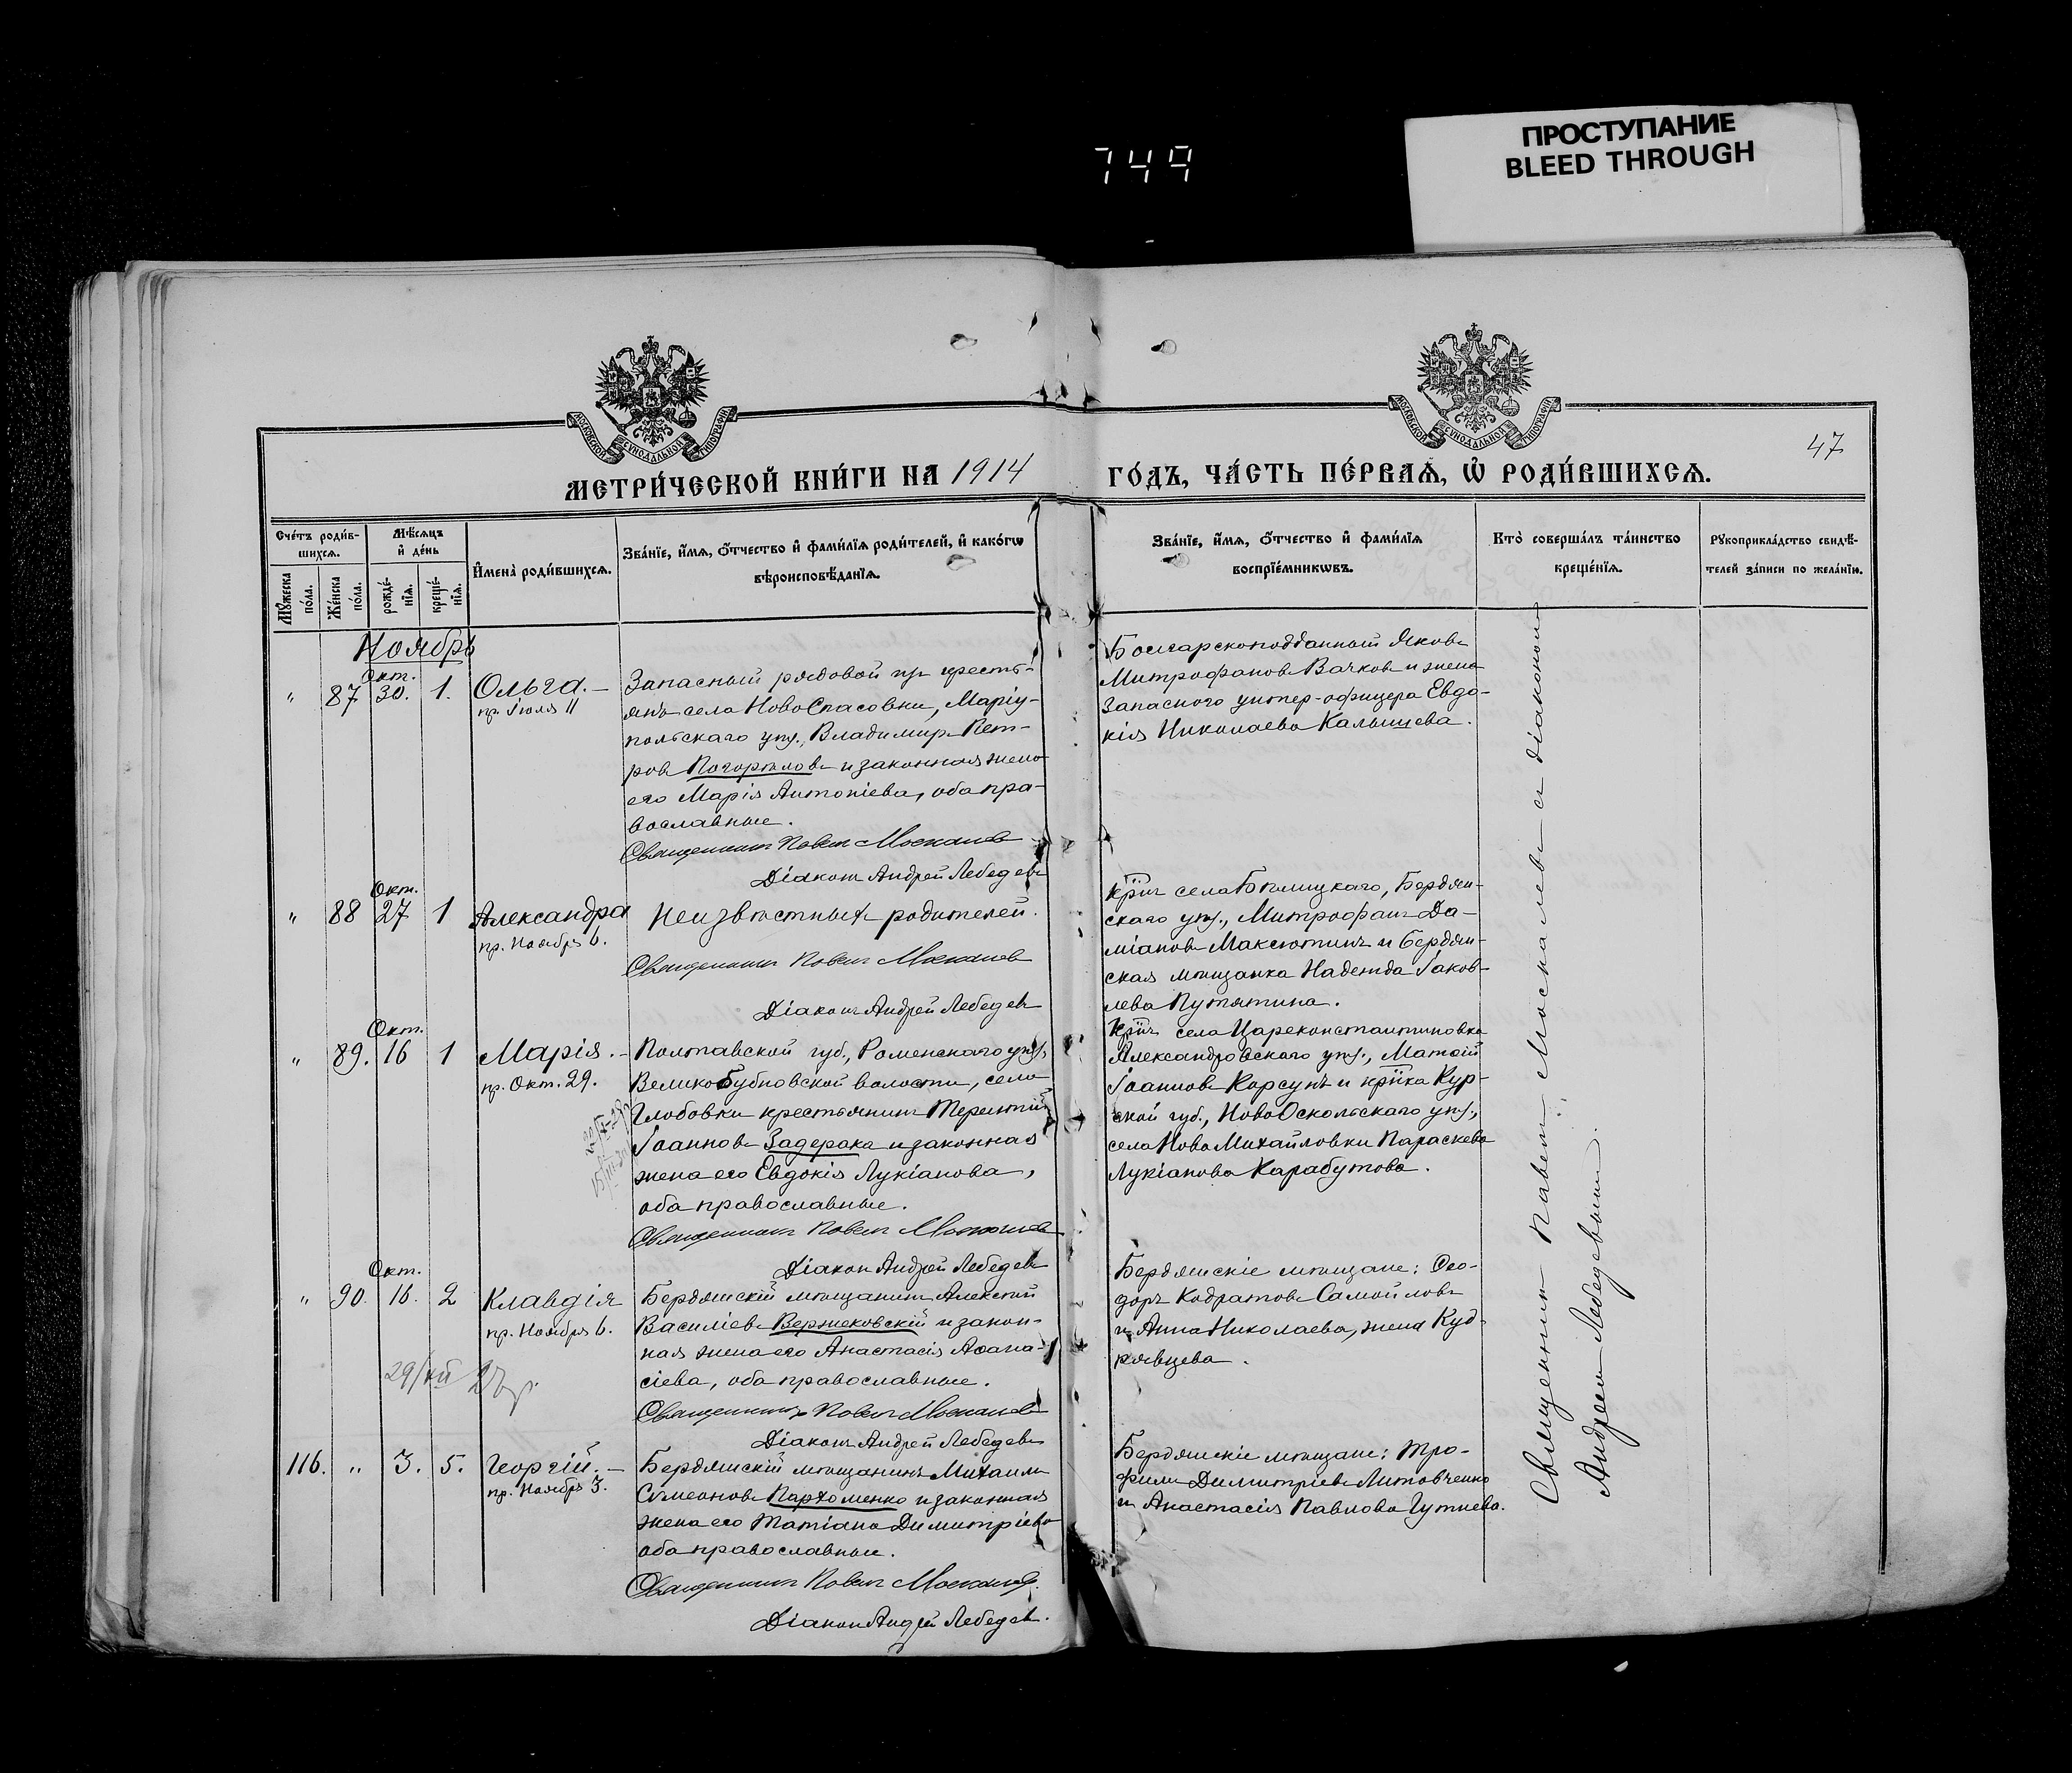 749
ПРОСТУПАНИЕ
BLEED THROUGH
МОСКОВСКОЙ СѴНОДАЛЬНОЙ ТИПОГРАФІИ
МОСКОВСКОЙ СѴНОДАЛЬНОЙ ТИПОГРАФІИ
47
МЕТРИ́ЧЕСКОЙ КНИ́ГИ НА 1914 ГО́ДЪ, ЧА́СТЬ ПЕ́РВАѦ, Ѡ҆ РОДИ́ВШИХСѦ.
Сче́тъ роди́в-
шихсѧ.
Мѣ́сѧцъ
и҆ де́нь
Мꙋ́жеска
по́ла.
Же́нска
по́ла.
рожде́-
нїѧ.
креще́-
нїѧ.
И҆мена̀ роди́вшихсѧ.
Зва́нїе, и҆́мѧ, ѻ҆́тчество и҆ фами́лїѧ роди́телей, и҆ како́гѡ
вѣроисповѣ́данїѧ.
Зва́нїе, и҆́мѧ, ѻ҆́тчество и҆ фами́лїѧ
воспрїе́мникѡвъ.
Кто̀ соверша́лъ та́инство
креще́нїѧ.
Рꙋкоприкла́дство свидѣ́-
телей за́писи по жела́нїю.
Ноябрь
Окт.
" 87 30. 1. Ольга. –
пр. Іюля 11
Запасный рядовой изъ кресть-
янъ села НовоСпасовки, Маріу-
польскаго уѣз., Владимиръ Пет-
ровъ Погорѣловъ и законная жена
его Марія Антоніева, оба пра-
вославные.
Священникъ Павелъ Москалевъ
Діаконъ Андрей Лебедевъ
Болгарскоподданный Яковъ
Митрофановъ Вачковъ и жена
Запасного унтер-офицера Евдо-
кія Николаева Калышева.
Окт.
" 88 27 1 Александра
пр. Ноября 6.
Неизвѣстныхъ родителей.
Священникъ Павелъ Москалевъ
Діаконъ Андрей Лебедевъ
кр̃нъ села Бѣлицкаго, Бердян-
скаго уѣз., Митрофанъ Да-
міановъ Максютинъ и бердян-
ская мѣщанка Надежда Іаков-
лева Путятина.
Окт.
" 89. 16 1 Марія. –
пр. Окт. 29.
Полтавской губ., Роменскаго уѣз.,
ВеликоБубновской волости, села
Глобовки крестьянинъ Терентій
Іоанновъ Задерака и законная
жена его Евдокія Лукіанова,
оба православные.
Священникъ Павелъ Москалевъ
Діаконъ Андрей Лебедевъ
кр̃нъ села Цареконстантиновка
Александровскаго уѣз., Матѳій
Іоанновъ Корсунъ и кр̃нка Кур-
ской губ., НовоОскольскаго уѣз.,
села НовоМихайловки Параскева
Лукіанова Карабутова.
Окт.
" 90. 16. 2 Клавдія
пр. Ноября 6.
29/XII
Бердянскій мѣщанинъ Алексій
Василіевъ Вержековскій и закон-
ная жена его Анастасія Аѳана-
сіева, оба православные.
Священникъ Павелъ Москалевъ
Діаконъ Андрей Лебедевъ
Бердянскіе мѣщане: Ѳео-
доръ Кодратовъ Самойловъ
и Анна Николаева, жена Куд-
рявцева.
116. " 3. 5. Георгій. –
пр. Ноября 3.
Бердянскій мѣщанинъ Михаилъ
Симеоновъ Пархоменко и законная
жена его Татіана Димитріева
оба православные.
Священникъ Павелъ Москалевъ.
Діаконъ Андрей Лебедевъ.
Бердянскіе мѣщане: Тро-
фимъ Димитріевъ Литовченко
и Анастасія Павлова Гутнева.
Священникъ Павелъ Москалевъ съ діакономъ
Андреемъ Лебедевымъ.